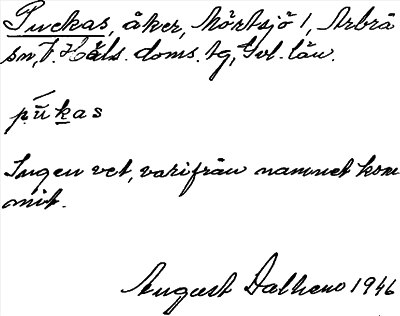 Puckas, åker, Mörtsjö 1, Arbrå
sn, V. Häls. doms. tg, Gvl. län.
pūkas
Ingen vet, varifrån namnet kom
mit.
August Dalheno 1946